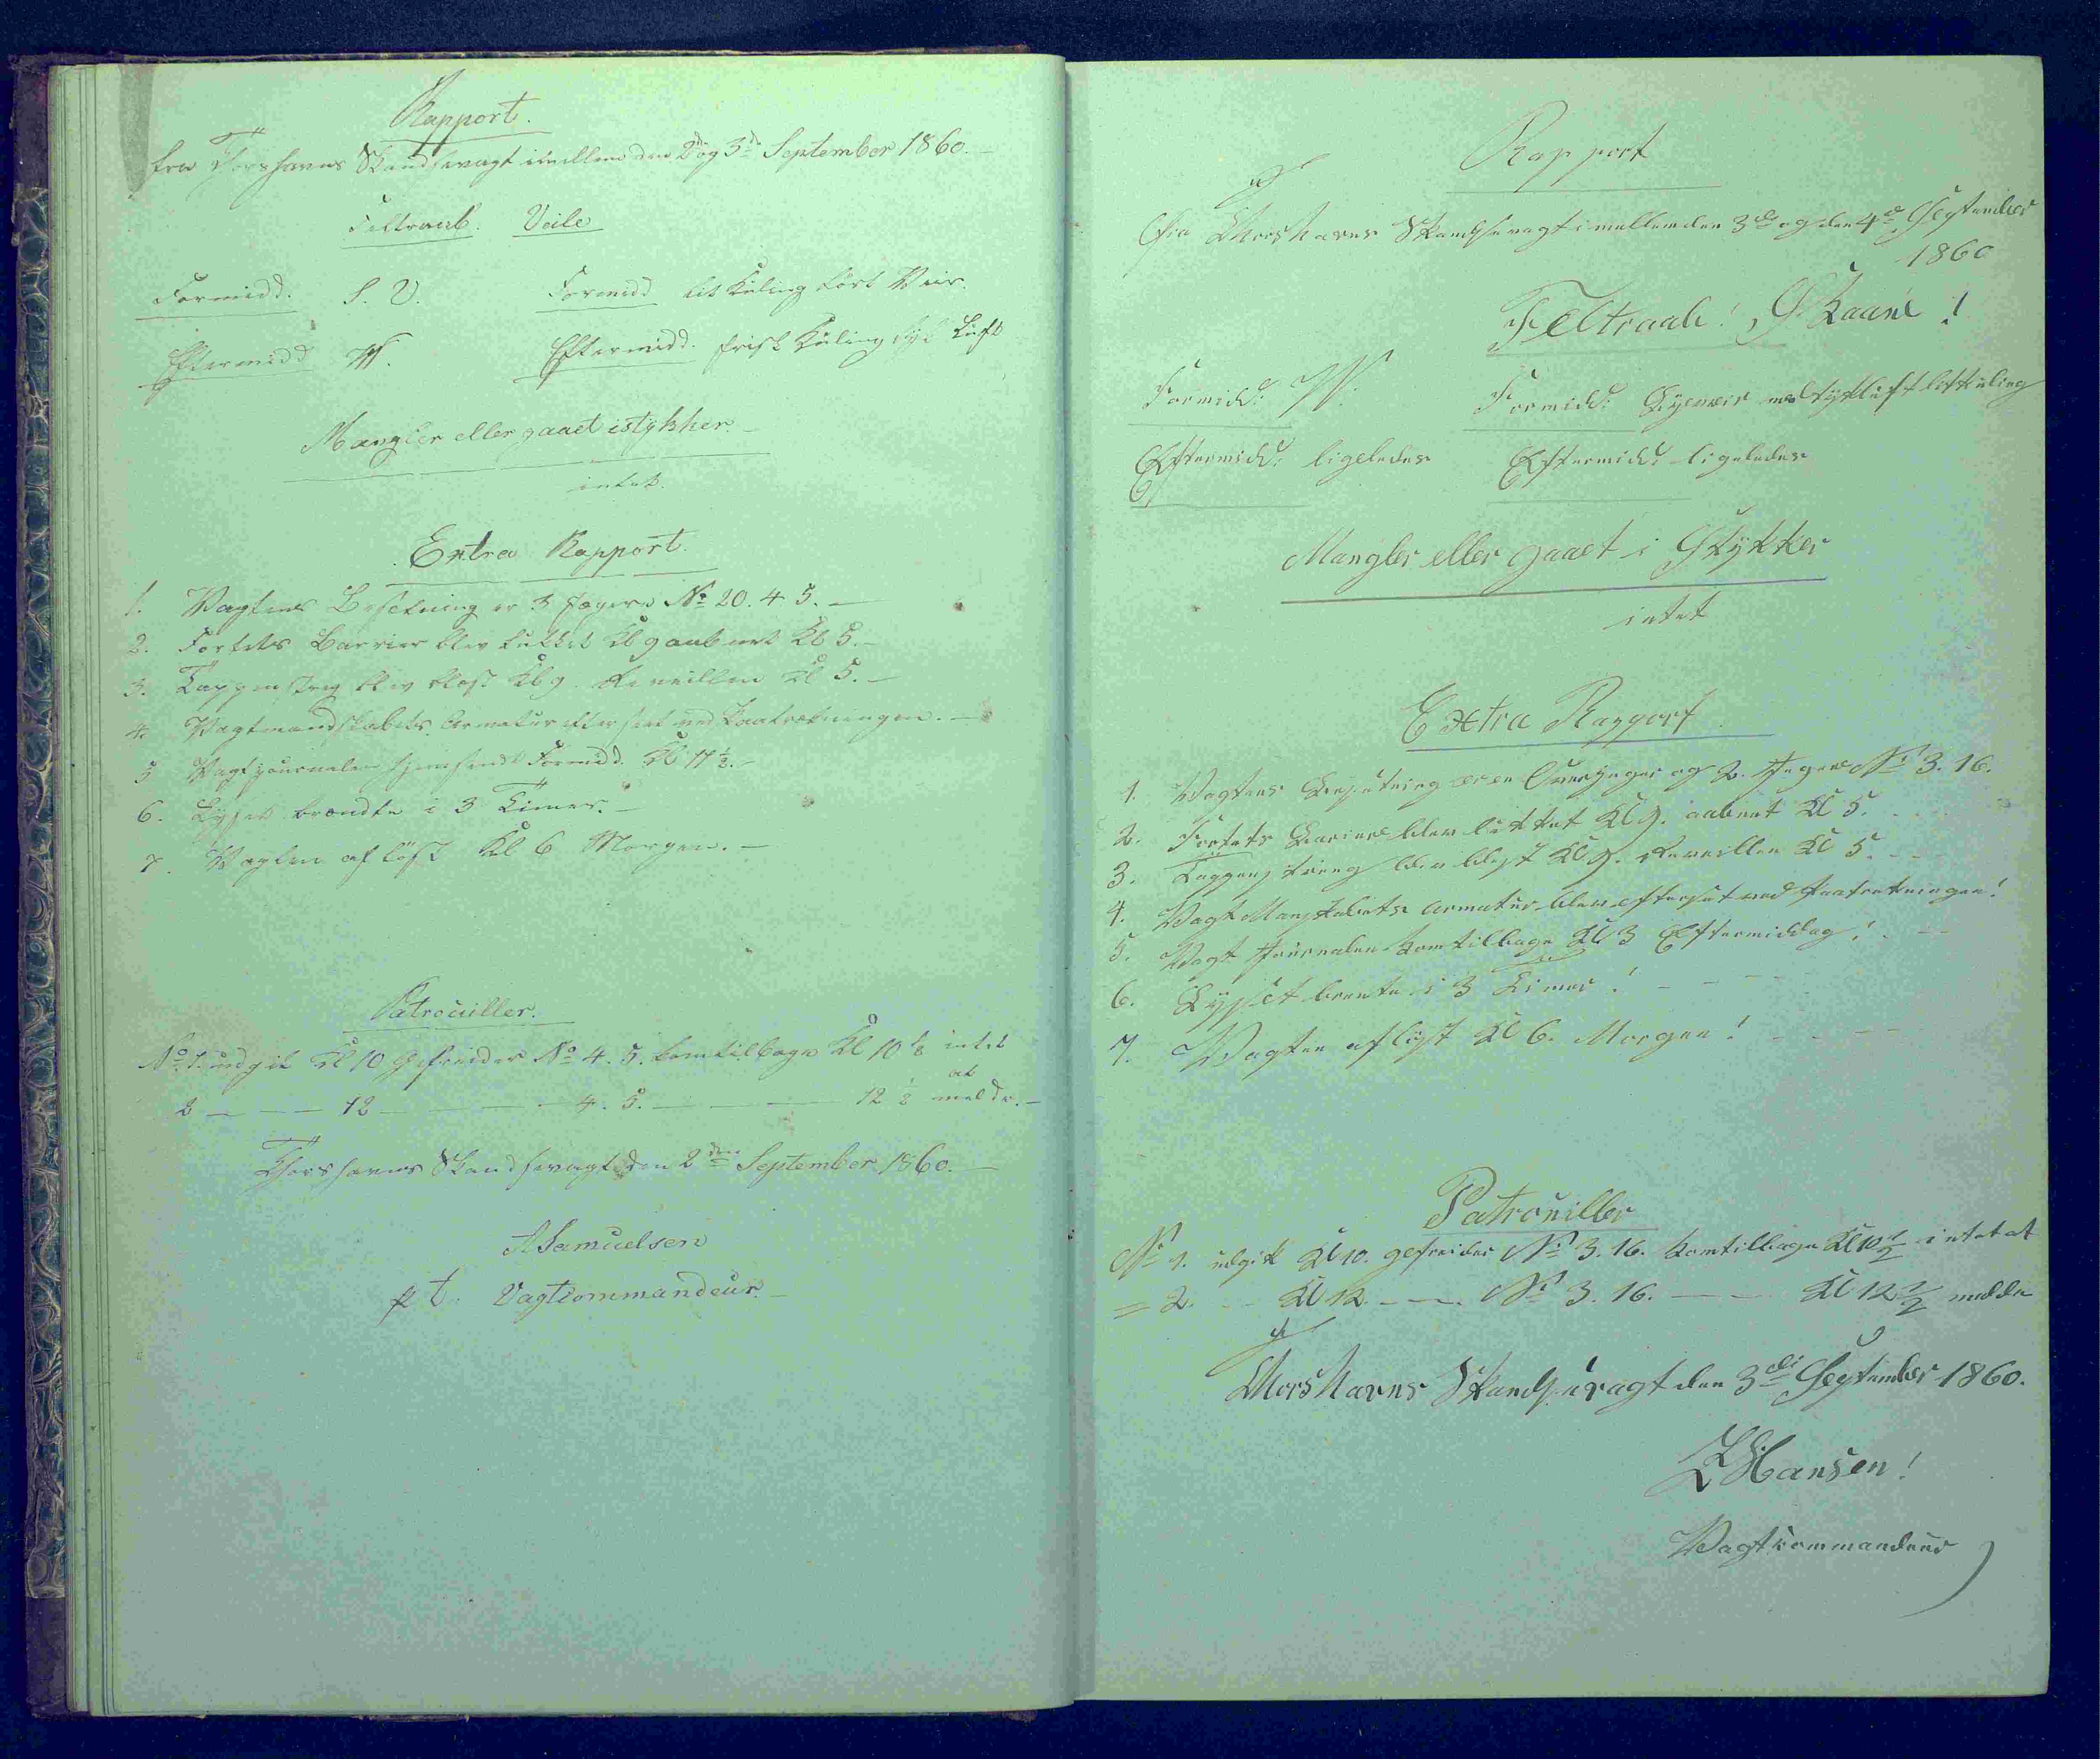 Rapport.
fra Thorshavns Skandsevagt imellem den 2d og 3de September 1860.
Feltraab. Veile
Formidd. S. V. Formidd lit Kuling tört Veir.
Eftermidd W. Eftermidd. frisk Kuling tyk Luft
Mangler eller gaaet istykker.
intet.
Extra Rapport.
1. Vagtens Besetning er 3 Jægere No 20. 4 5. —
2. Fortets Barrier blev lukket Kl 9 aabnet Kl 5. —
3. Tappenstreg blev blæst Kl 9. Reveillen Kl 5. —
4. Vagtmandskabets Armatur efterseet ved Paatrædningen. —
5 Vagtjournalen hjemsendt Formidd. Kl 11 ½. —
6. Lyset brændte i 3 Timer. —
7. Vagten aflöst Kl 6 Morgen. —
Patrouiller.
No 1. udgik Kl 10 Gefreider No 4. 5. kom tilbage Kl 10 ½ intet
at
2 — — — 12 — — — 4. 5. — — — 12 ½ melde. —
Thorshavns Skandsevagt den 2den September 1860. —
A Samuelsen
p t. Vagtcommandeur. —
Rapport
Fra Thorshavns Skandsevagt imellem den 3de og den 4de September
1860
Feltraab! Skaane!
Formidd: W. Formidd: Byeveir med tyk luft lit kuling
Eftermidd: ligeledes Eftermidd: ligeledes
Mangler eller gaaet i Stykker
intet
Extra Rapport
1. Vagtens Besætning er en Overjæger og 2. Jægere No 3. 16.
2. Fortets Bariere blev lukket Kl 9. aabnet Kl 5.
3. Tappenstreng blev blæst Kl. 9. Reveillen Kl 5. - -
4. Vagt Manskabets armatur blev efterset ved Paatrædningen!
5. Vagt Journalen kom tilbage Kl 3 Eftermiddag! - -
6. Lyset brente i 3 Timer! - - -
7. Vagten aflöst Kl 6. Morgen! - - -
Patrouiller
No 1. udgik Kl 10. gefreider No 3. 16. kom tilbage Kl 10 ½ intet at
= 2. - - Kl 12. - - No 3. 16. - - Kl 12 ½ melde
Thorshavns Skandsevagt den 3de September 1860.
Hansen!
Vagtkommandeur